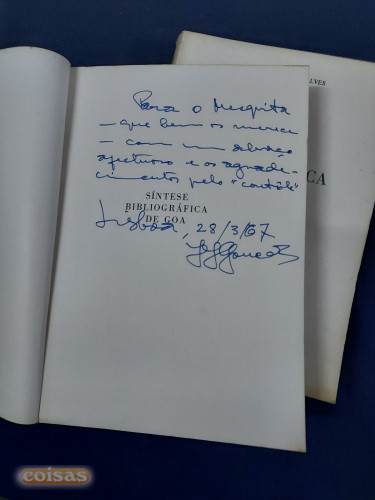 Para o Mesquita
— que bem os merece
— com um abraço
afetuoso e os agrade-
cimentos pelo "
SÍNTESE
BIBLIOGRÁFICA
DE GOA
Lisboa, 28/3/67
LVES
CA
coisas